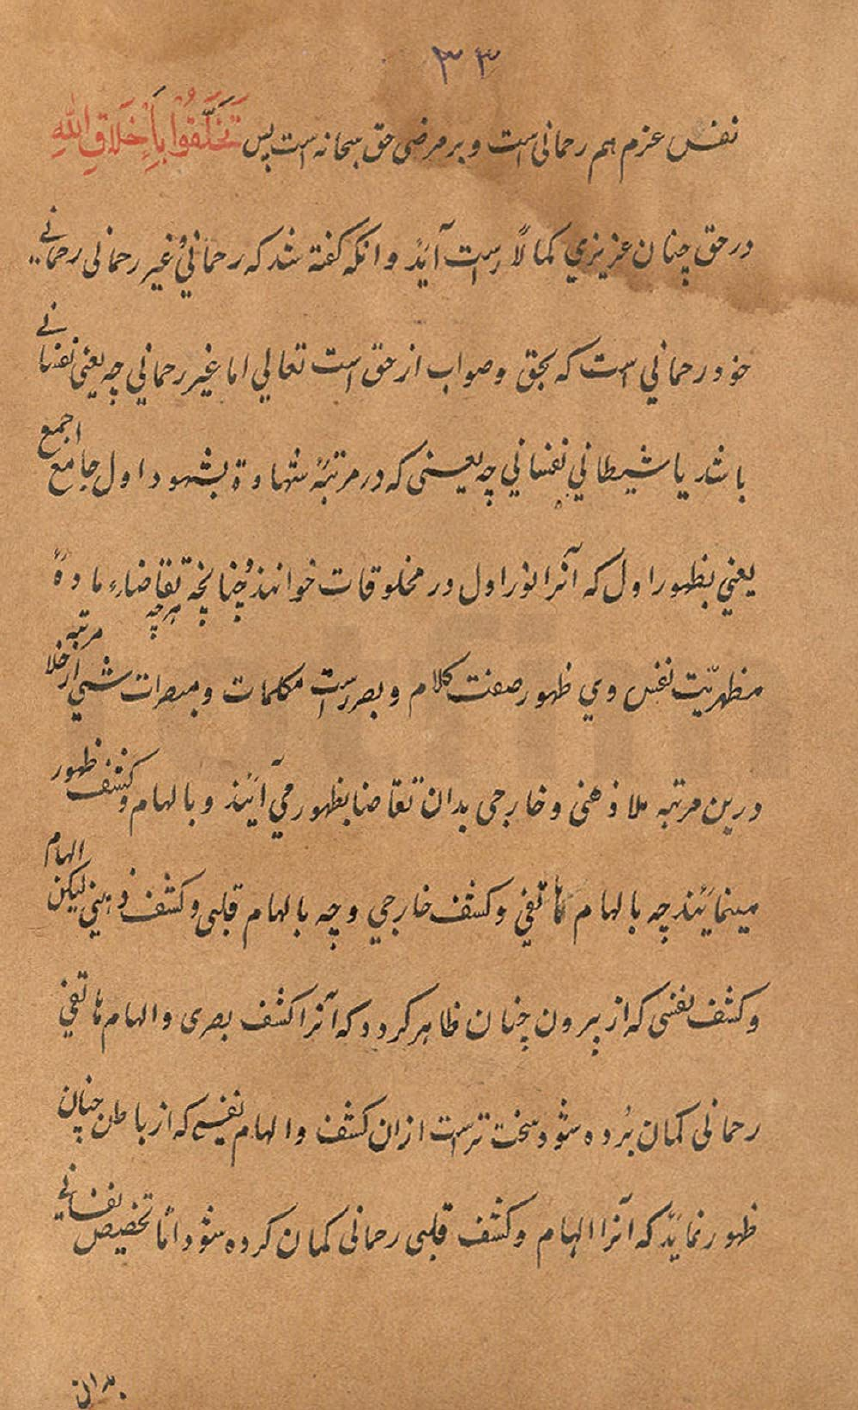 ٣٣
نفس عزم هم رحمانی است و بر مرضی حق سبحانه است پس تَخَلَّقُوا بِأَخْلَاقِ اللهِ
در حق چنان عزیزی کمالًا راست آید و انکه کفته شد که رحمانی و غیر رحمانی رحمانے
خود رحمانی است که بحق و صواب از حق است تعالی اما غیر رحمانی چه یعنی نفسانے
باشد یا شیطانی نفسانی چه یعنی که در مرتبهٔ شهادة بشهود اول جامع اجمع
یعنی بظهور اول که آنرا نور اول در مخلوقات خوانند چنانچه هرچه تقاضاء مادهٔ
مظهریّت نفس وی ظهور صفت کلام و بصر است مکلمات و مبصرات شی از مرتبه
درین مرتبه ملا ذهنی و خارجی بدان تقاضا بظهور می آیند و بالهام و کشف ظهور
مینمایند چه بالهام هاتفی و کشف خارجی و چه بالهام قلبی و کشف ذهینی لیکن الهام
و کشف نفسی که از بیرون چنان ظاهر کردد که آنرا کشف بصری و الهام هاتفی
رحمانی کمان برده شود سخت تر است ازان کشف و الهام نفسی که از باطن چنان
ظهور نماید که آنرا الهام و کشف قلبی رحمانی کمان کرده شود امّا تخصیص نفسانے